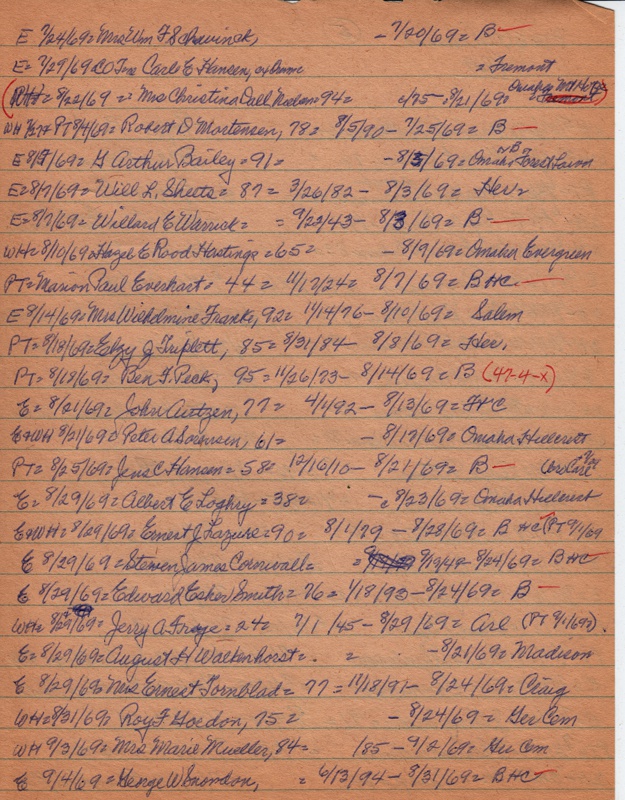 E 7/24/69= Mrs Wm F Schavinak, - 7/20/69= B—
E= 7/29/69 CO Carle E Hansen, = Fremont
(WH= 8/22/69 = Mrs Christina Dall Nielsen= 94= /75- 8/21/69= Omaha )
WH PT 8/4/69= Robert D Mortensen, 78= 8/5/90- 7/25/69= B—
E 8/7/69= G Arthur Bailey= 91= - 8/5/69= Omaha Forest Lawn
E=8/7/69= Will L. Sheets= 87= 3/26/82- 8/3/69= Her=
E=8/7/69= Willard E Warrick= = 9/22/43- 8/3/69= B—
WH=8/10/69=Hazel E Rood Hastings=65= - 8/9/69= Omaha Evergreen
PT=Marion Paul Everhart= 44= 11/17/24= 8/7/69= BHC—
E 8/14/69=Mrs Wilhelmine Franke, 92= 11/14/76- 8/10/69= Salem
PT=8/18/69=Elzy J Triplett, 85= 8/31/84- 8/8/69= Her.
PT= 8/18/69= Ben F. Peck, 95=11/26/73- 8/14/69= B (47-4-x)
E= 8/21/69= John Autzen, 77= 4/1/92- 8/13/69= FHC
E=WH 8/21/69= Peter A Sorensen, 61= - 8/17/69= Omaha Hillcrest
PT= 8/25/69= Jens C. Hansen= 58= 12/16/10- 8/21/69= B—
E= 8/29/69= Albert E Loghry= 38= - 8/23/69= Omaha Hillcrest
E+WH= 8/29/69= Ernest J Lazure=90= 8/1/79- 8/28/69= B HC (PT 9/1/69
E 8/29/69= Steven James Cornwall= = 9/19/47- 8/24/69= BHC
E 8/29/69= Edward Esher Smith= 76= 1/18/93- 8/24/69= B—
WH= 8/29/69= Jerry A Froze= 24= 7/1/45- 8/29/69= Arl (PT 9/1/69=).
E= 8/29/69= August H Walkenhorst= = - 8/21/69= Madison
E 8/29/69= Mrs Ernest Fornblad= 77= 11/18/91- 8/24/69= Craig
WH=8/31/69= Roy F Gordon, 75= - 8/24/69= Ger Cem
WH 9/3/69= Mrs Marie Mueller, 84= /85- 9/2/69= Ger Cem
E 9/4/69= George W Snowdon, = 6/13/94- 8/31/69= BHC